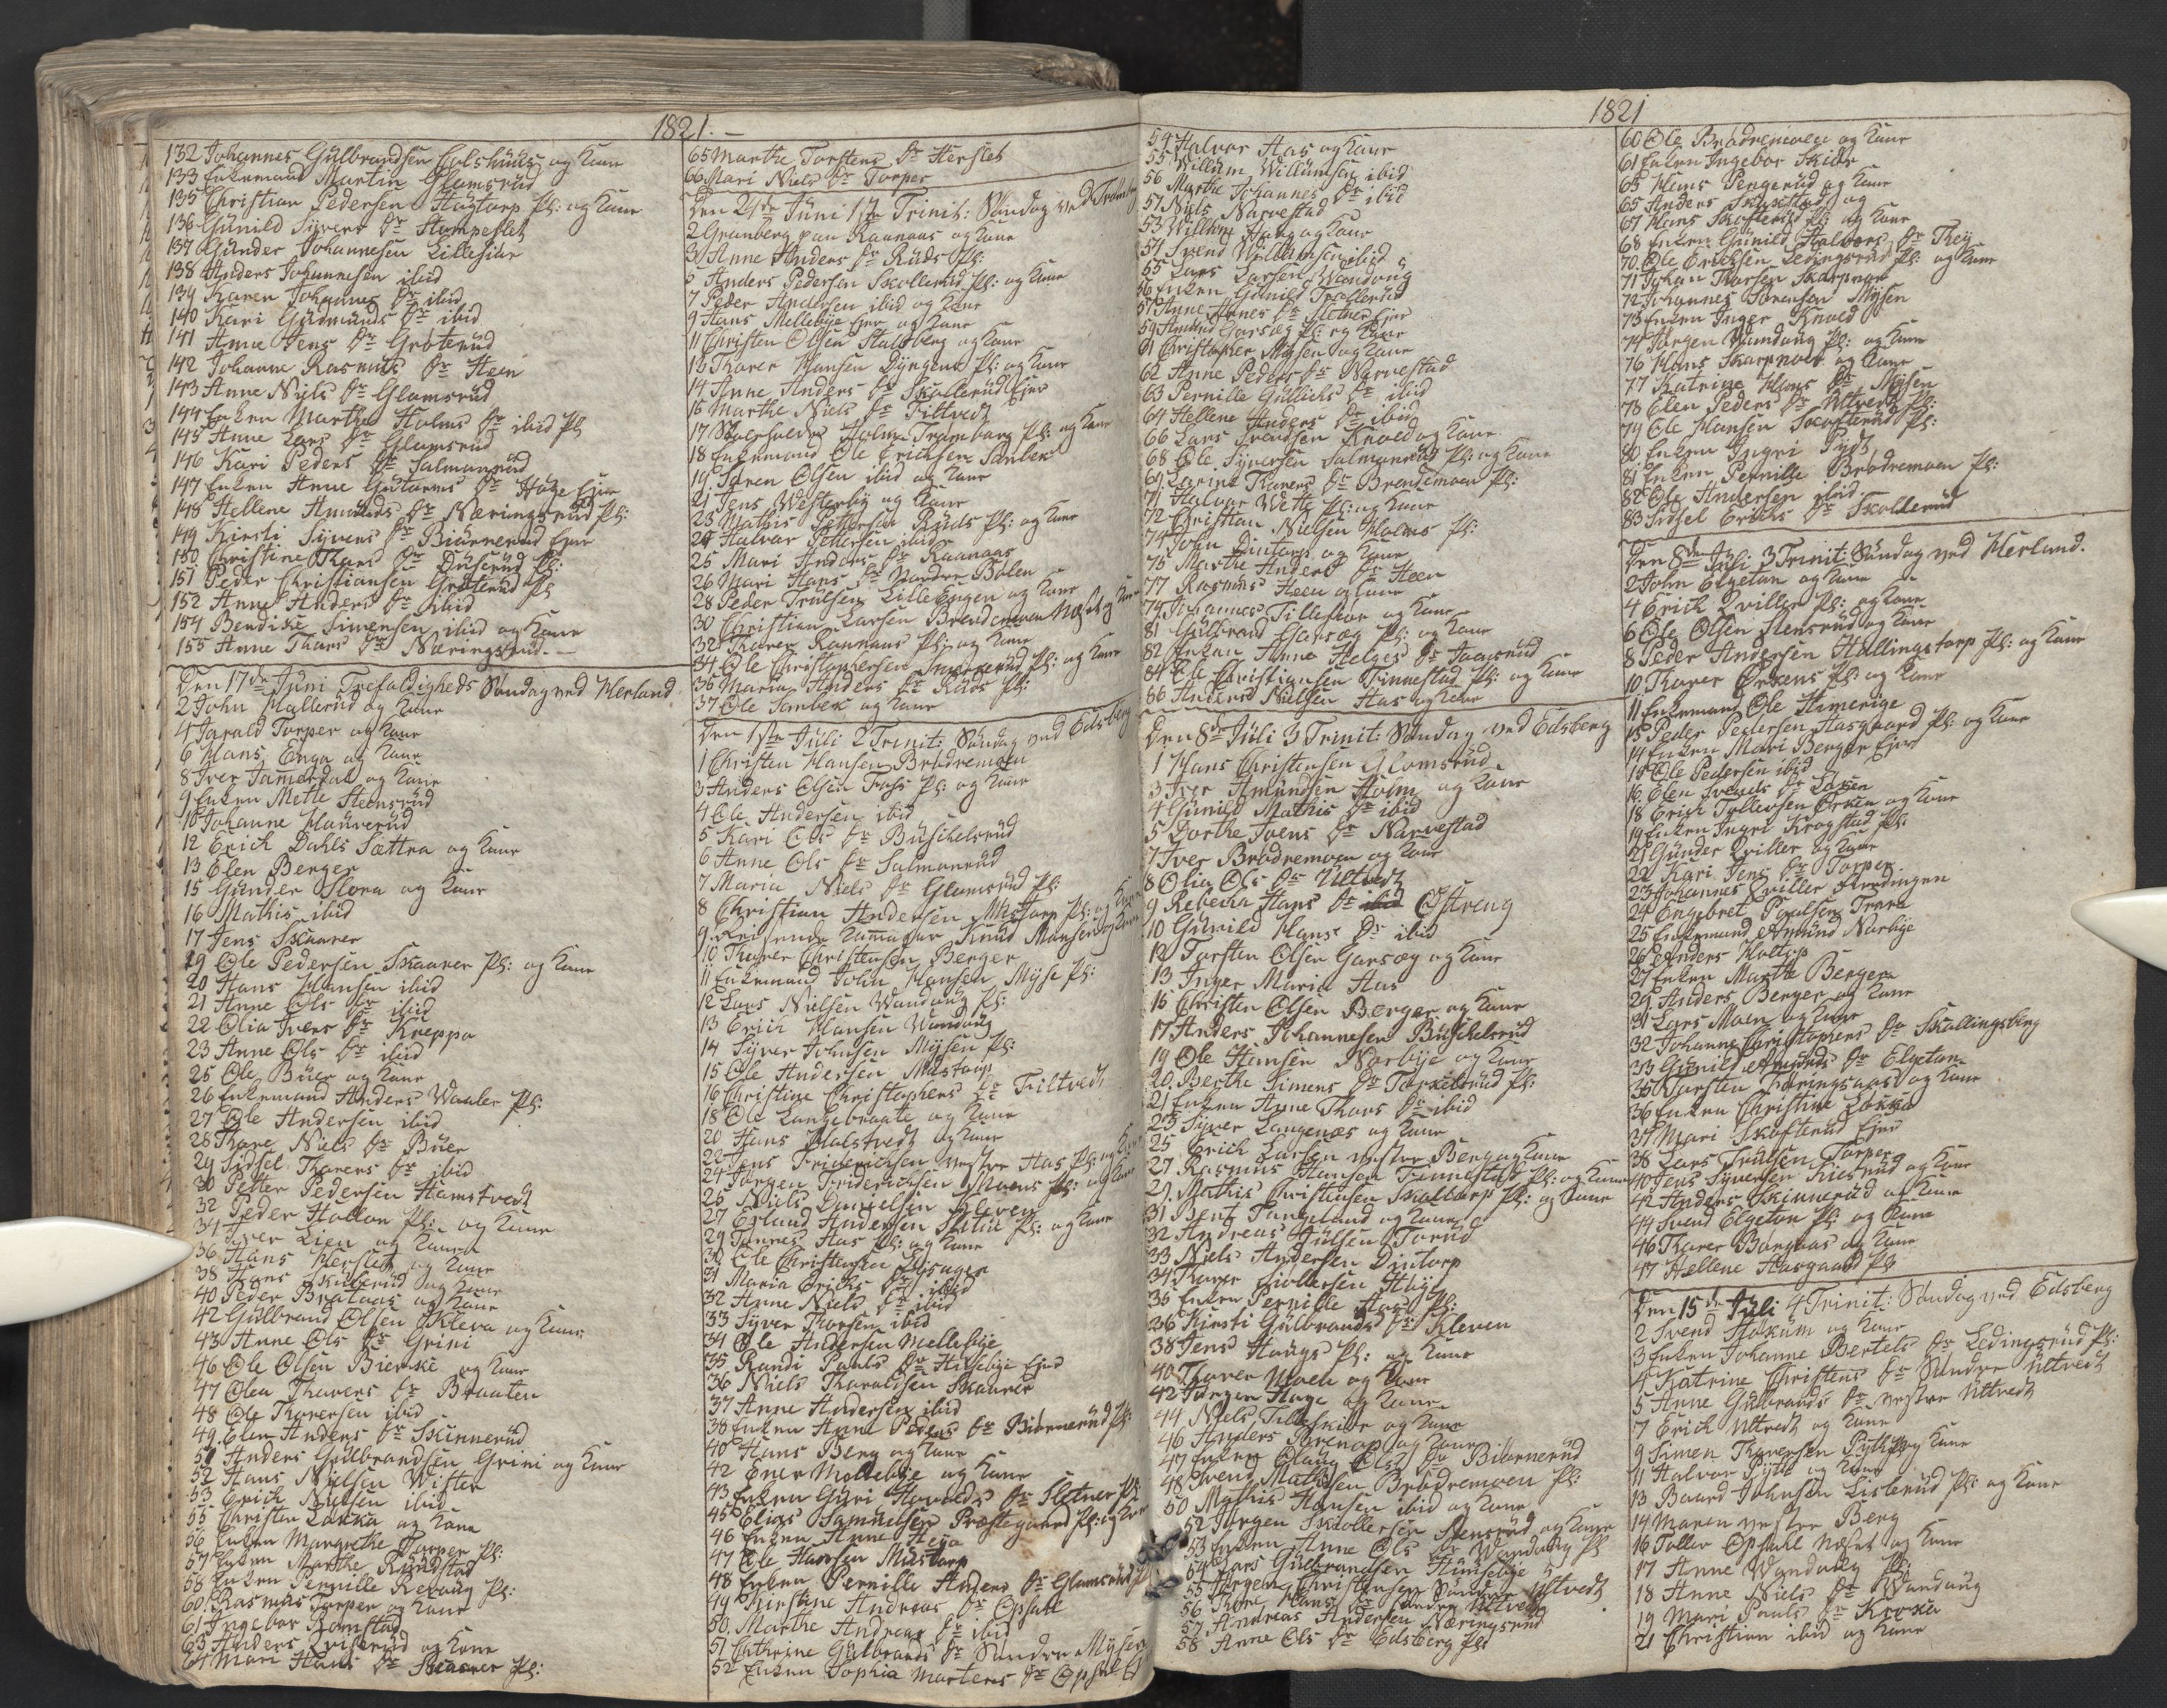 1821. –
132 Johannes Gulbrandsen Colshuus og Kone
133 Enkemand Martin Glamsrud
135 Christian Pedersen Haugtorp Pl: og Kone
136 Gunild Syvers Dr Stompeslet
137 Gunder Johannesen Lilleskiær
138 Anders Johannesen ibid
139 Karen Johannes Dr ibid
140 Kari Gudmunds Dr ibid
141 Anne Jens Dr Groterud
142 Johanne Rasmus Dr Heen
143 Anne Niels Dr Glamsrud
144 Enken Marthe Holms Dr ibid Pl
145 Anne Lars Dr Glamsrud
146 Kari Peders Dr Salmonrud
147 Enken Anne Gutorms Dr Hage Eier
148 Hellene Amunds Dr Næringsrud Pl:
149 Kirsti Syvers Dr Biørnerud Eier
150 Christine Thars Dr Duserud Pl:
151 Peder Christiansen Groterud Pl
152 Anne Anders Dr ibid
154 Bendix Simensen ibid og Kone
155 Anne Thars Dr Næringsrud. –
Den 17de Juni Trefoldigheds Søndag ved Herland
2 John Hallerud og Kone
4 Harald Torper og Kone
6 Hans Enga og Kone
8 Iver Jamerdal og Kone
9 Enken Mette Steensrud
10 Johanne Haurerud
12 Erich Dahls Sættra og Kone
13 Elen Berger
15 Gunder Slora og Kone
16 Mathis ibid
17 Jens Skaarer
19 Ole Pedersen Skaarer Pl: og Kone
20 Hans Hansen ibid
21 Anne Ols Dr ibid
22 Olia Ivers Dr Kreppa
23 Anne Ols Dr ibid
25 Ole Buer og Kone
26 Enkemand Anders Waaler Pl:
27 Ole Andersen ibid
28 Thore Niels Dr Buer
29 Sidsel Thorers Dr ibid
30 Petter Pedersen Hamstvedt
32 Peder Hollon Pl: og Kone
34 Iver Lien og Kone
36 Hans Herslet og Kone
38 Hans Skullerud og Kone
40 Peder Brataas og Kone
42 Gulbrand Olsen Kleva og Kone
43 Anne Ols Dr Grini
46 Ole Olsen Bierke og Kone
47 Olea Thorers Dr Braaten
48 Ole Thoresen ibid
49 Elen Anders Dr Skinnerud
51 Anders Gulbrandsen Grini og Kone
52 Hans Nielsen Wister
53 Erich Nielsen ibid
55 Christen Løkka og Kone
56 Enken Margrethe Torper Pl:
57 Enken Marthe Rundstad
58 Enken Pernille Revaug Pl:
60 Rasmus Torper og Kone
61 Ingebor Ramstad
63 Anders Qvislerud og Kone
64 Mari Hans Dr Skaarer Pl:
65 Marthe Torstens Dr Herslet
66 Mari Niels Dr Torper
Den 24de Juni 1ste Trinit: Søndag ved Trømborg
2 Granberg paa Raanaas og Kone
3 Anne Anders Dr Ruds Pl:
5 Anders Pedersen Skollerud Pl: og Kone
7 Peder Andersen ibid og Kone
9 Hans Mellebye Eier og Kone
11 Christen Olsen Stalsberg og Kone
13 Thorer Hansen Dyngen Pl: og Kone
14 Anne Anders Dr Skallerud Eier
16 Marthe Niels Dr Filtvedt
17 Holm Trømborg Pl: og Kone
18 Enkemand Ole Erichsen Sanbek
19 Søren Olsen ibid og Kone
21 Jens Westerby og Kone
23 Mathis Pettersen Ruds Pl: og Kone
24 Halvor Pettersen ibid
25 Mari Anders Dr Raanaas
26 Mari Hans Dr Nordre Bølen
28 Peder Trulsen Lille Engen og Kone
30 Christian Larsen Brandemoen Næset og Kone
32 Thorer Raanaas Pl: og Kone
34 Ole Christophersen Pl: og Kone
35 Maria Anders Dr Ruds Pl:
37 Ole Sanbek og Kone
Den 1ste Juli 2 Trinit: Søndag ved Edsberg
1 Christen Hansen Brødremoen
3 Anders Olsen Foss Pl: og Kone
4 Ole Andersen ibid
5 Kari Ols Dr Buschelsrud
6 Anne Ols Dr Salmonrud
7 Maria Niels Dr Glamsrud Pl:
8 Christian Andersen Mustorp Pl: og Kone
9 Reisende Knud Mansen og Kone
10 Thorer Christensen Berger
11 Enkemand John Hansen Myse Pl:
12 Lars Nielsen Wandaug Pl:
13 Erich Hansen Wandaug
14 Syver Johnsen Mysen Pl:
15 Ole Andersen Mustorp
16 Christine Christophers Dr Filtvedt
18 Ole Langebraate og Kone
20 Hans Halstvedt og Kone
22 Jens Friderichsen vestre Has Pl: og Kone
24 Jørgen Friderichsen Moens Pl: og Kone
26 Niels Danielsen Kleven
27 Erland Andersen Sletta Pl: og Kone
29 Tønnes Has Pl: og Kone
30 Ole Christensen
31 Maria Erichs Dr ibid
32 Anne Niels Dr ibid
33 Syver Thorsen ibid
34 Ole Andersen Mellebye
35 Randi Pouls Dr Huusebye Eier
36 Niels Tharaldsen Skaarer
37 Anne Andersen ibid
38 Enken Anne Peders Dr Biørnerud Pl:
40 Hans Berg og Kone
42 Ener Mellebye og Kone
43 Enken Guri Haralds Dr Sletner Pl
45 Elias Samuelsen Præstegaard Pl: og Kone
46 Enken Anne Heya
47 Ole Hansen Mustorp
48 Enken Pernille Anders Dr Glamsrud
49 Kirstine Andreas Dr Opsahl
50 Marthe Andreas Dr ibid
51 Cathrine Gulbrands Dr Søndre Mysen
52 Enken Sophia Mortens Dr Opsal
1821
54 Halvor Has og Kone
55 Willum Willumsen ibid
56 Marthe Johannes Dr ibid
57 Niels Narvestad
53 Willum Haug og Kone
54 Svend Willumsen ibid
55 Lars Larsen Wandaug
56 Enken Gunild Trollerud
57 Anne Hanes Dr Sletner Eier
59 Amund Garseg Pl: og Kone
61 Christopher Mysen og Kone
62 Anne Peders Dr Narvestad
63 Pernille Gullichs Dr ibid
64 Hellene Anders Dr ibid
66 Lars Svendsen Knoed og Kone
68 Ole Syversen Salmonrud Pl: og Kone
69 Karine Thorers Dr Brandemoen Pl:
71 Halvor Wette Pl: og Kone
72 Christian Nielsen Holms Pl:
74 John Dintorp og Kone
75 Marthe Anders Dr Heen
77 Rasmus Heen og Kone
79 Johannes Tilleskiør og Kone
81 Gulbrand Garseg Pl: og Kone
82 Enken Anne Helges Dr Jaamsrud
84 Ole Christiansen Finnestad Pl: og Kone
86 Anders Nielsen Has og Kone
Den 8de Juli 3 Trinit: Søndag ved Edsberg
1 Hans Christensen Glomsrud
3 Iver Amundsen Holm og Kone
4 Gunild Mathis Dr ibid
5 Dorthe Ivers Dr Narvestad
7 Iver Brødremoen og Kone
8 Olia Ols Dr Ultvedt
9 Rebecka Hans Dr ibid Østreng
10 Gunild Hans Dr ibid
12 Torsten Olsen Garseg og Kone
13 Inger Maria Has
15 Christen Olsen Berger og Kone
17 Anders Johannesen Buschelsrud
19 Ole Hansen Norbye og Kone
20 Berthe Simens Dr Torkelsrud Pl:
21 Enken Anne Thors Dr ibid
23 Syver Langenæs og Kone
25 Erich Larsen vestre Berg og Kone
27 Rasmus Hansen Finnestad Pl: og Kone
29 Mathis Christensen Skoltorp Pl: og Kone
31 Bent Tangeland og Kone
32 Andreas Julsen Torud
33 Niels Andersen Dintorp
34 Thorer Siollersen Huje
35 Enken Pernille Has Pl:
36 Kirsti Gulbrands Dr Kleven
38 Jens Haugs Pl: og Kone
40 Thorer Moen og Kone
42 Jørgen Hage og Kone
44 Niels Tilleskiør og Kone
46 Anders Grenop og Kone
47 Enken Olaug Ols Dr Biørnerud
48 Svend Mathisen Brødremoen Pl:
50 Mathis Hansen ibid og Kone
52 Jørgen Skiollersen Stensrud og Kone
53 Enken Anne Ols Dr Wandaug Pl
54 Lars Gulbrandsen Huusebye
55 Jørgen Christensen Søndre Ultvedt
56 Thore Hans Dr Søndre Ultvedt
57 Andreas Andersen Næringsrud
58 Anne Ols Dr Edsberg Pl:
60 Ole Brødremoen og Kone
61 Enken Ingebor Skiør
63 Hans Pengerud og Kone
65 Anders Skakstad og
67 Hans Skofterud Pl: og Kone
68 Enken Gunild Halvors Dr Theye
70 Ole Erichsen Ledingsrud Pl: og Kone
71 Johan Thorsen Skarpnor
72 Johannes Sørensen Mysen
73 Enken Inger Knoed
74 Jørgen Wandaug Pl: og Kone
76 Hans Skarpnor og Kone
77 Katrine Hans Dr Mysen
78 Elen Peders Dr Ultvedt Pl:
79 Ole Hansen Skofterud Pl:
80 Enken Ingri Pyt
81 Enken Pernille Brødremoen Pl:
82 Ole Andersen ibid
83 Sidsel Erichs Dr Skollerud
Den 8de Juli 3 Trinit: Søndag ved Herland.
2 John Elgeton og Kone
4 Erich Qviller Pl: og Kone
6 Ole Olsen Stensrud og Kone
8 Peder Andersen Hallingstorp Pl: og Kone
10 Thorer Ørkens Pl: og Kone
11 Enkemand Ole Himerige
13 Peder Pedersen Hasgaard Pl: og Kone
14 Enken Mari Berger Eier
15 Ole Pedersen ibid
16 Elen Svends Dr Løken
18 Erich Tollevsen Ørken og Kone
19 Enken Ingri Krogstad Pl:
21 Gunder Qviller og Kone
22 Kari Jens Dr Torper
23 Johannes Qviller
24 Engebret Poulsen
25 Enkemand Amund Norbye
26 Anders Holtop
27 Enken Marthe Bergen
29 Anders Berger og Kone
31 Lars Moen og Kone
32 Johanne Christophers Dr Skallingsberg
33 Gunild Amunds Dr Elgeton
35 Torsten Thoringsaas og Kone
36 Enken Christine Løkka
37 Mari Skofterud Eier
38 Lars Trulsen Torper
40 Jens Syversen Kiesrud og Kone
42 Anders Skinnerud og Kone
44 Svend Elgeton Pl: og Kone
46 Thorer Bangaas og Kone
47 Hellene Hasgaard Pl:
Den 15de Juli 4 Trinit: Søndag ved Edsberg
2 Svend Hokum og Kone
3 Enken Johanne Bertels Dr Ledingsrud Pl:
4 Katrine Christens Dr Søndre Ultvedt
5 Anne Gulbrands Dr vestre Ultvedt
7 Erich Ultvedt og Kone
9 Simen Thoresen Pyt og Kone
11 Halvor Pyt og Kone
13 Baard Johnsen Lislerud Pl: og Kone
14 Maren vestre Berg
16 Toller Opsahl Næset og Kone
17 Anne Wandaug Pl:
18 Anne Niels Dr Wandaug
19 Mari Pouls Dr Kroxa
21 Christian ibid og Kone